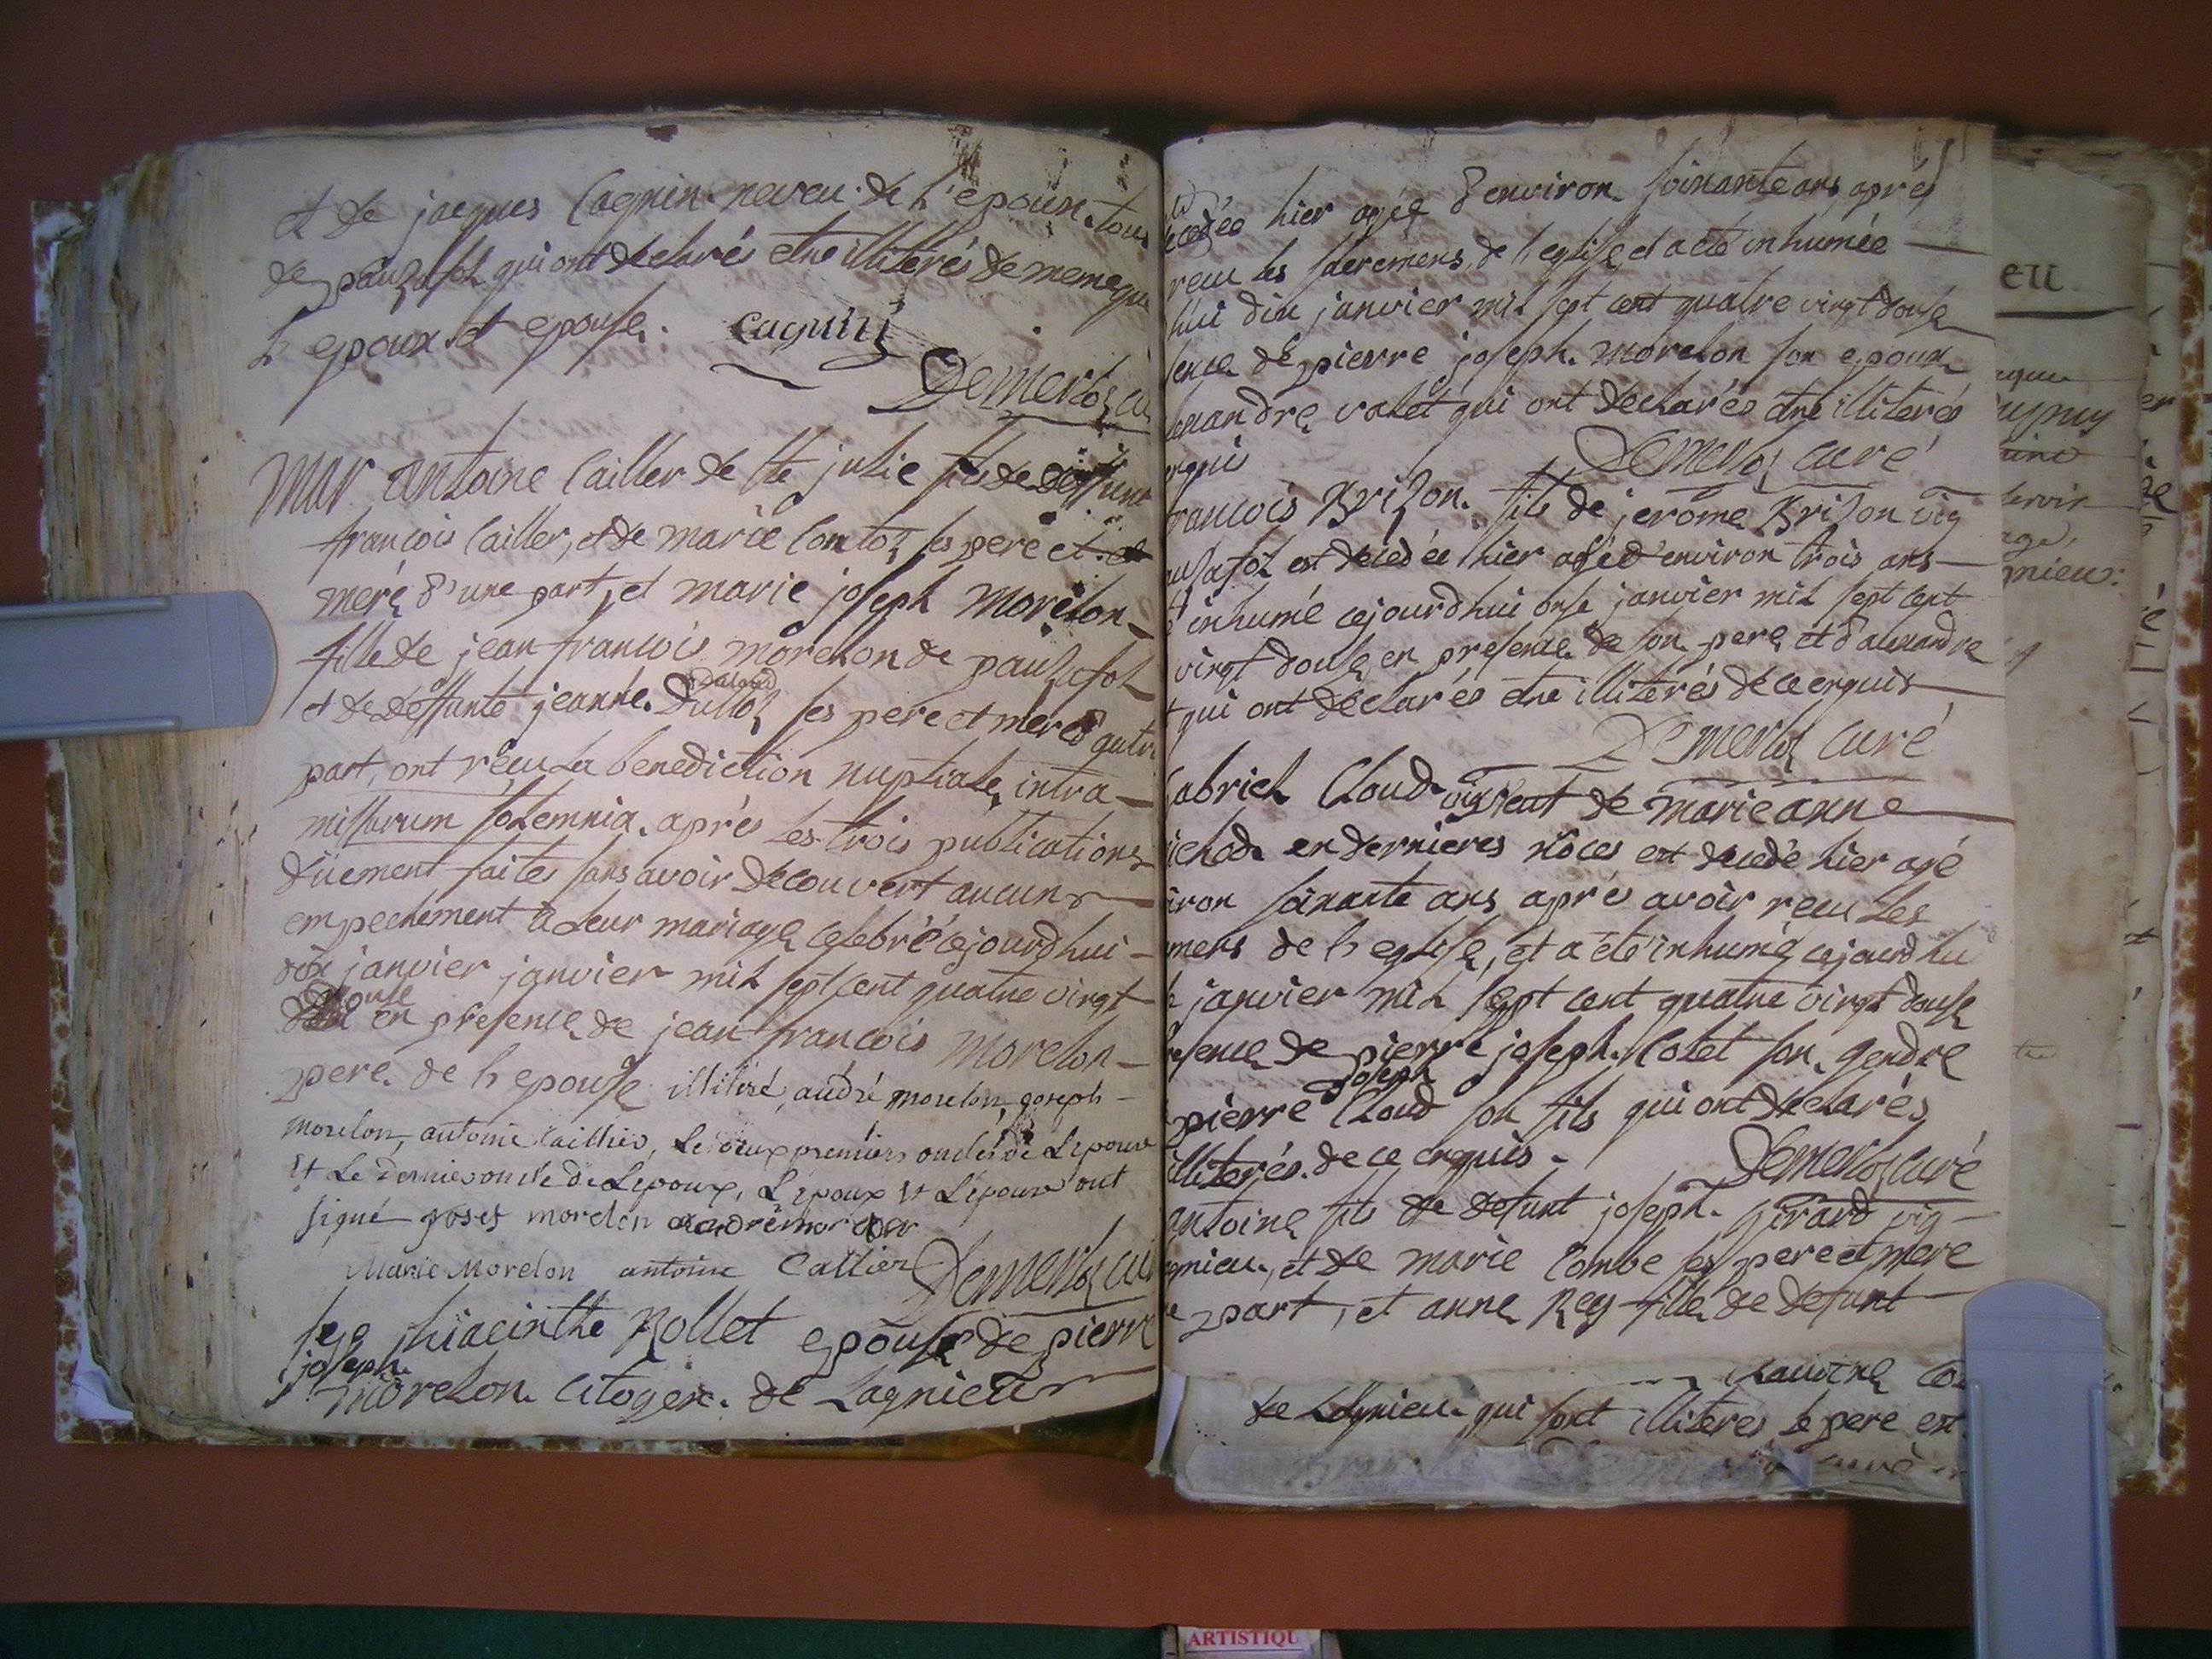 et de jacques Cagnin neveu de l'epoux tous
de pauzafol qui ont declarés etre illiterés de meme que
l epoux et epouse. Cagnin
Demerloz cu
Mar antoine Cailler de Ste julie fils de deffunt
francois Cailler, et de marie Contoz ses pere et
mere d'une part, et marie joseph morelon
fille de jean francois morelon de pauzafol
et de deffunte jeanne. Dulloz ses pere et mere d autre
part, ont recu la benediction nuptiale, intra
missarum solemnia. aprés les trois publications
düement faites sans avoir decouvert aucuns
empechement a leur mariage celebré cejourdhui
dix janvier janvier mil sept cent quatre vingt
douse
en presence de jean francois morelon
pere de l epouse illitéré, andré morelon, joseph
morelon, antoine caillier, les deux premiers oncles de Lepouse
et Le dernier oncle de Lepoux, L'epoux et L'epouse ont
signé joset morelon andré morelon
Marie Morelon antoine Callier Demerloz cu
Sep hiacinthe Rollet epouse de pierre
joseph
morelon citoyen de Lagnieu
ecedée hier agée d'environ soixante ans aprés
recu les sacremens de l eglise, et a eté inhumée
hui dix janvier mil sept cent quatre vingt douse
sence de pierre joseph. morelon son epoux
lexandre valet qui ont declarés etre illiterés
rquis Demerloz curé
francois Brizon. fils de jerome Brizon vig
auzafol est decedée hier agé d'environ trois ans
é inhumé cejourdhui onse janvier mil sept cent
vingt douse en presence de son pere et d'alexandre
t qui ont déclarés etre illiterés de ce enquis
Demerloz Curé
Gabriel Cloud vig veut de marie anne
ichod en dernieres nôces est decedé hier agé
iron soixante ans aprés avoir recu Les
mens de l eglise, et a eté inhumé cejourdhui
e janvier mil sept cent quatre vingt douse
resence de pierre joseph. Colet son gendre
joseph
pierre Cloud son fils qui ont declarés
illiterés. de ce enquis. Demerloz curé
antoine fils de defunt joseph. Girard vig
gnieu, et de marie Combe ses pere et mere
e part, et anne Rey fille de defunt
de Lagnieu qui sont illiteres, le pere est
eu
gnieu
ARTISTIQU